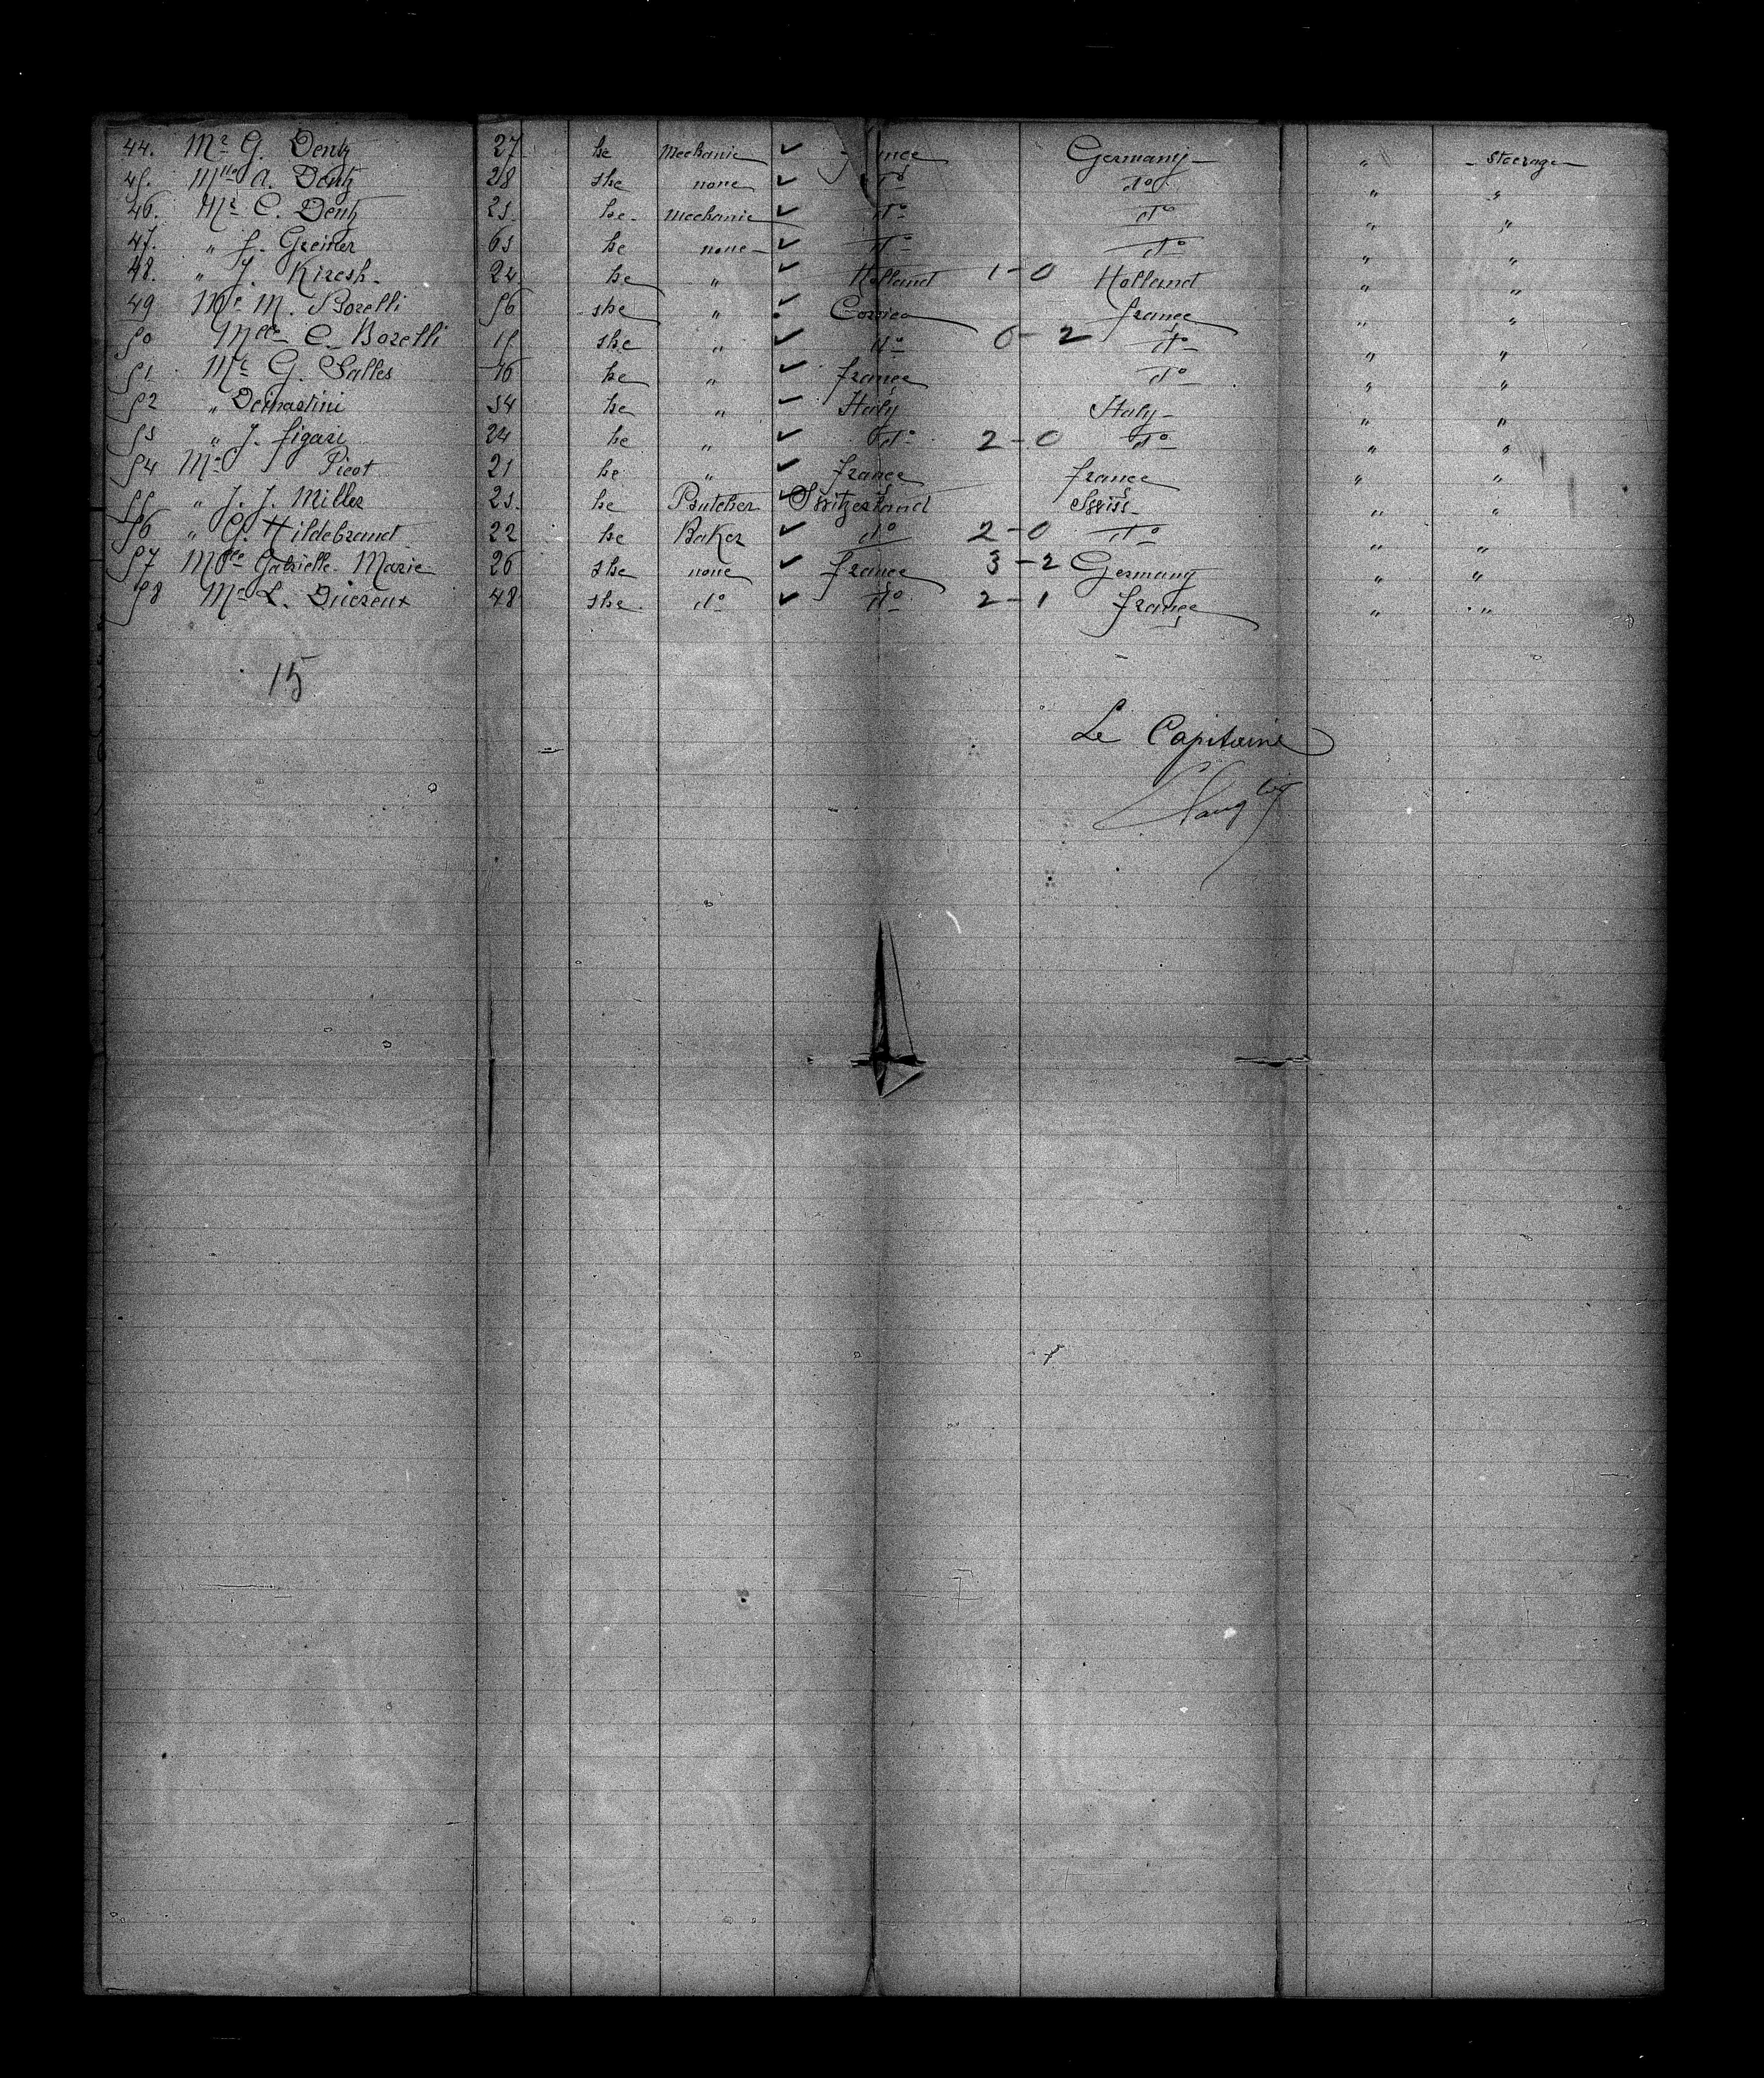 44. Mr G. Dentz 27 he Mechanic ✓ France Germany " Steerage
45. Mlle A. Dentz 28 she none ✓ do do " "
46. Mr C. Dentz 25 he Mechanic ✓ do do " "
47. " J. Greiner 65 he none ✓ do do " "
48. " J. Kiresh 24 he " ✓ Holland 1-0 Holland " "
49 Me M. Borelli 56 she " ✓ Corsica france " "
50 Melle C. Borelli 15 she " ✓ do 0-2 do " "
51 Mr G. Salles 46 he " ✓ france do " "
52 " Demastini 34 he " ✓ Italy Italy " "
53 " J. figari 24 he " ✓ do 2-0 do " "
54 Mr Picot 21 he " ✓ france france " "
55 " J. J. Miller 25 he Butcher ✓ Switzerland Swiss " "
56 " G. Hildebrand 22 he Baker ✓ do 2-0 do " "
57 Melle Gabrielle Marie 26 she none ✓ france 3-2 Germany " "
58 Me L. Ducreux 48 she do ✓ do 2-1 france " "
15
Le Capitaine